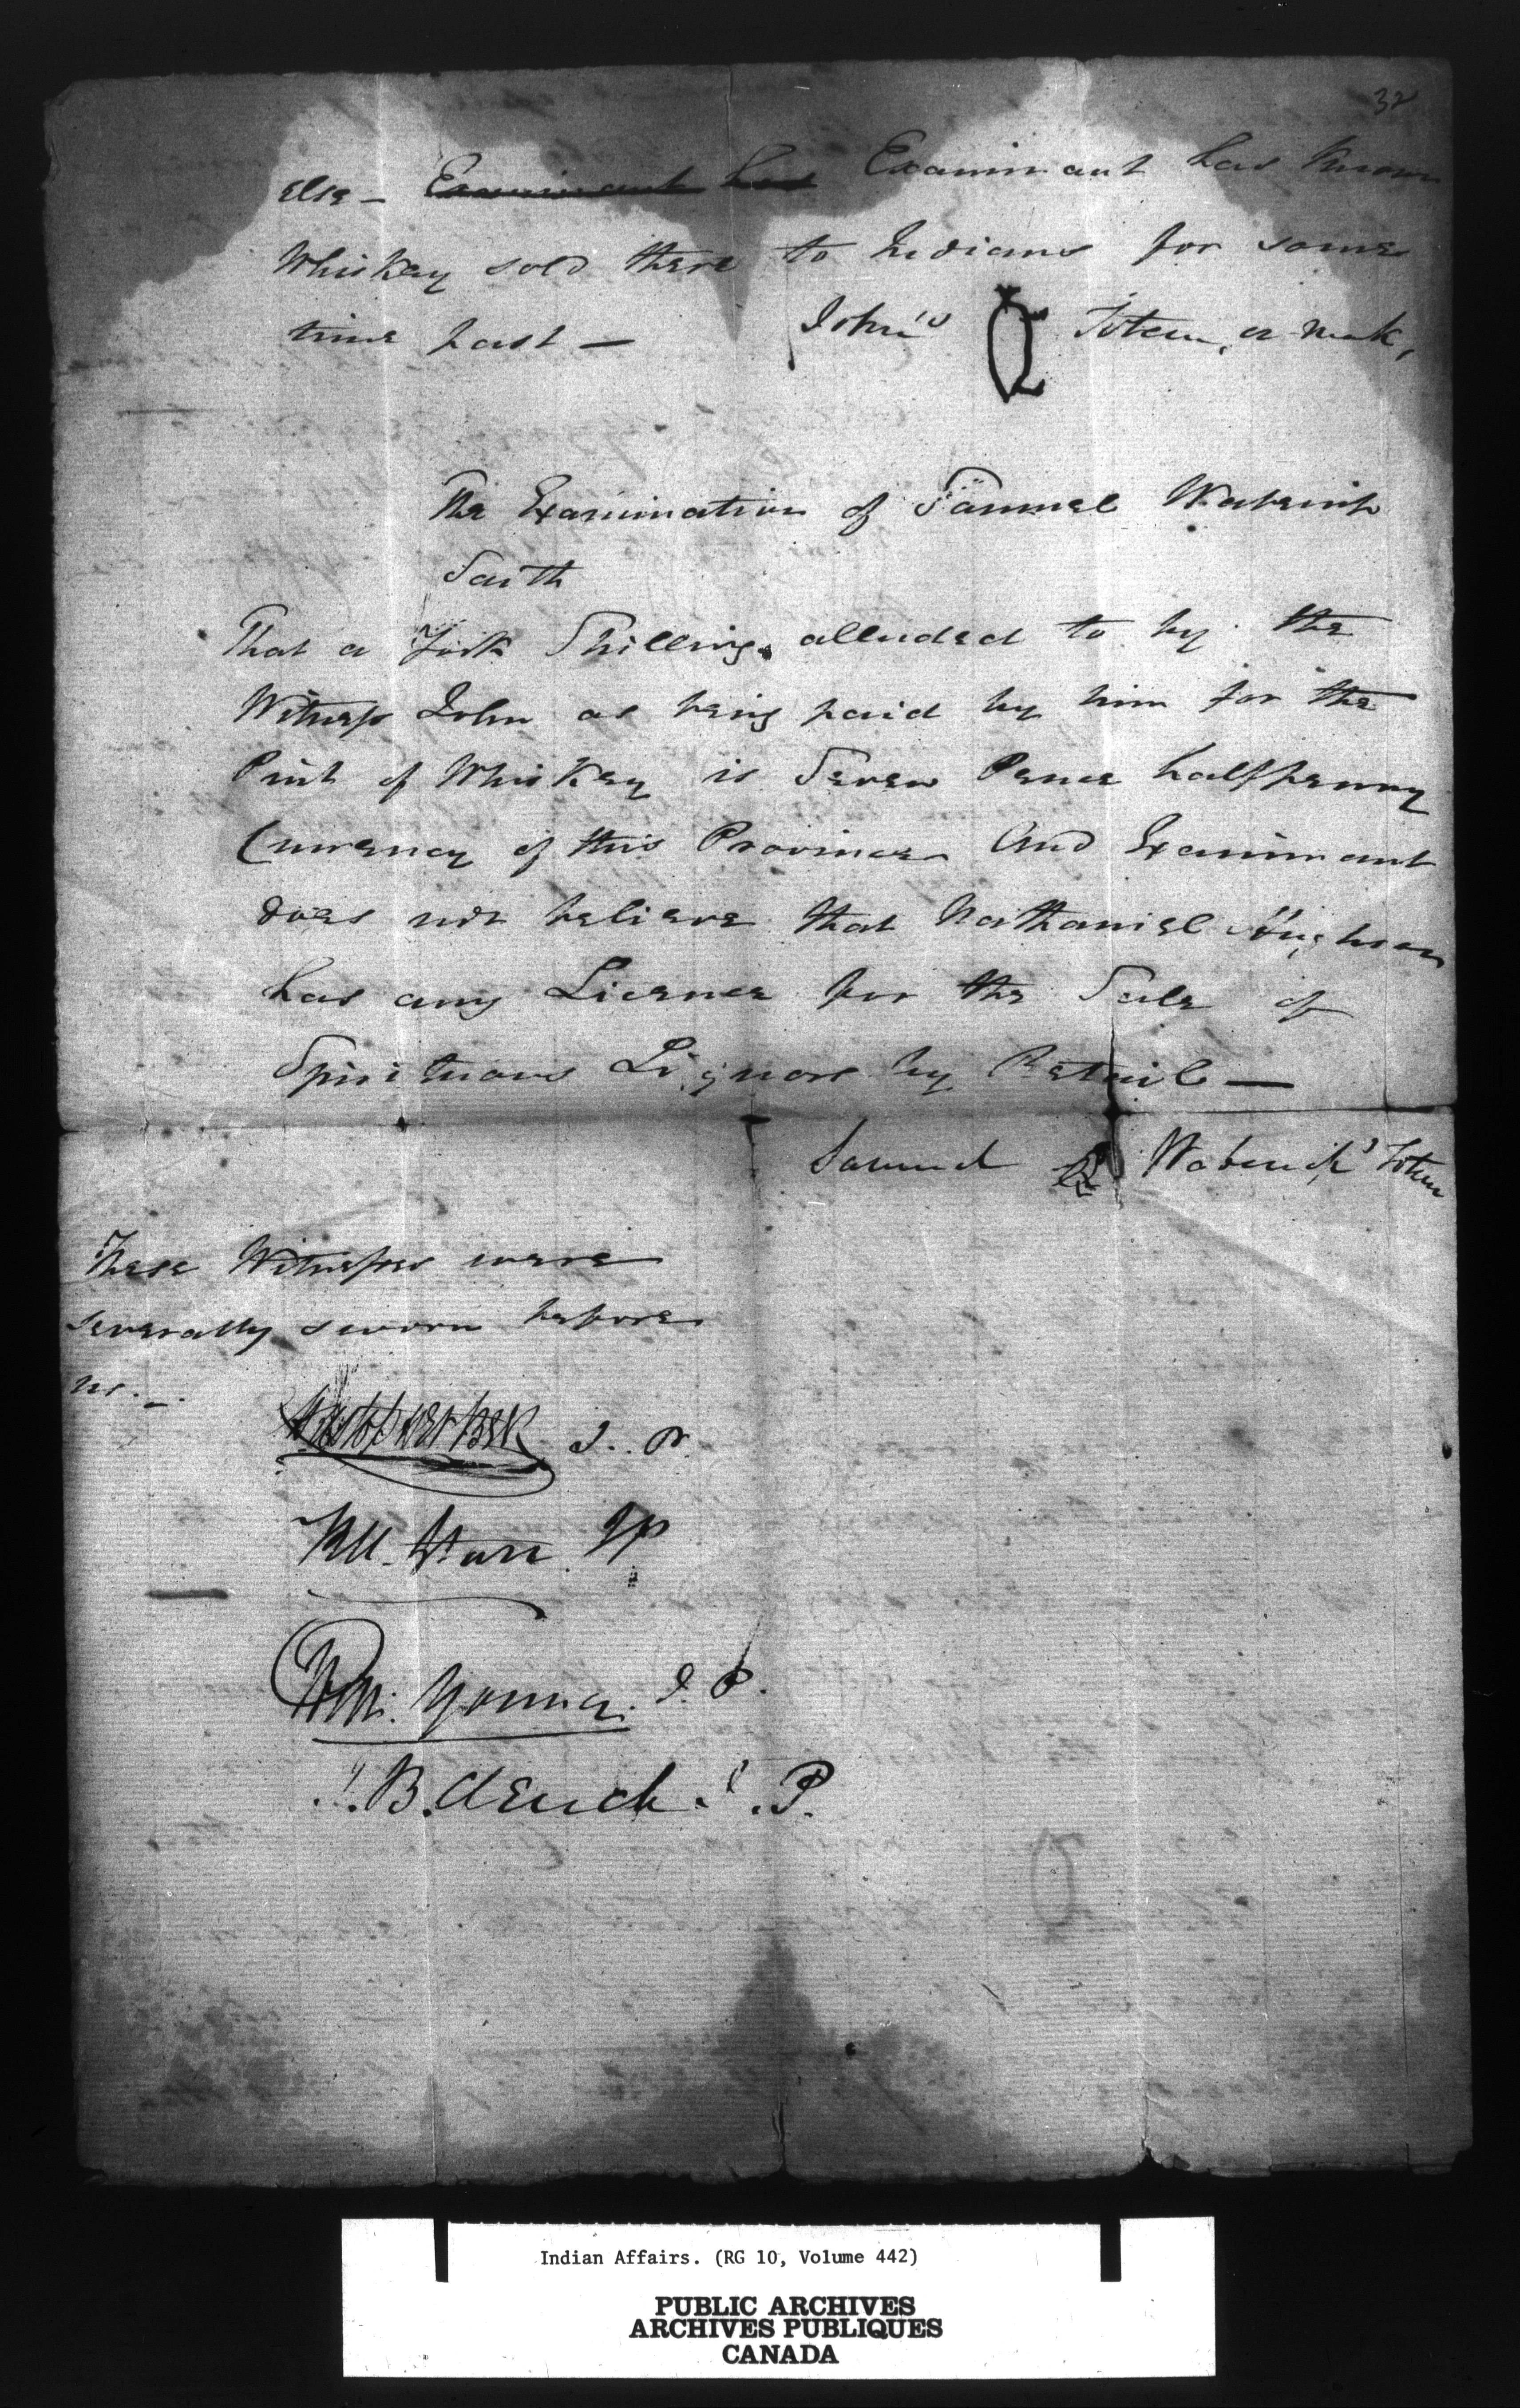 32
else — Examinant has Examinant has known
Whiskey sold there to Indians for some
time past — John's Totem, or mark,
The Examination of Samuel Wabenip
Saith
That a York Shilling alluded to by the
Witness John as being paid by him for the
Pint of Whiskey is Seven Pence halfpenny
Currency of this Province And Examinant
does not believe that Nathaniel Hughson
has any Licence for the Sale of
Spirituous Liquors by Retail —
Samuel Totem
These Witnesses were
severally sworn before
us. —
J. P.
JP
Wm. Young. J. P.
J. B. Clench. J. P.
Indian Affairs. (RG 10, Volume 442)
PUBLIC ARCHIVES
ARCHIVES PUBLIQUES
CANADA